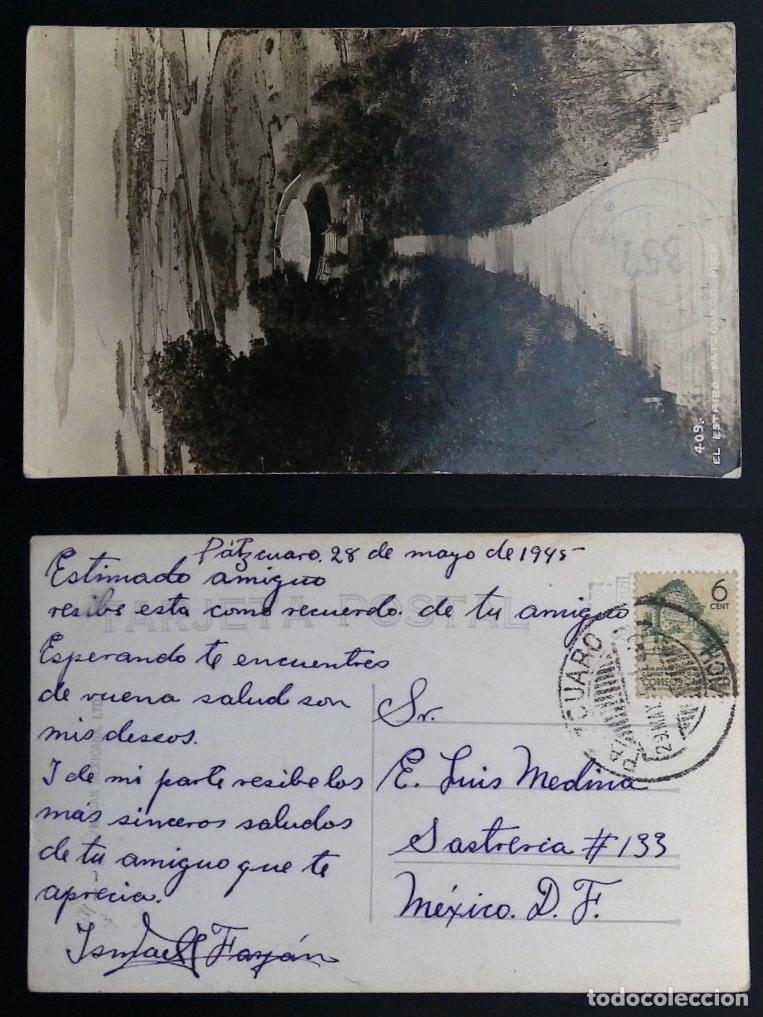 409.
EL ESTRIBO
351
Pátzcuaro. 28 de mayo de 1945-
Estimado amiguo
resibe esta como recuerdo. de tu amiguo
TARJETA POSTAL
Esperando te encuentres
de vuena salud son
mis deseos.
I de mi parte resibe los
mas sinceros saludos
de tu amiguo que te
aprecia.
Ismael
6
CENT
CORREOS
PATZCUARO
Sr.
E. Luis Medina
Sastreria # 133
México. D. F.
todocoleccion